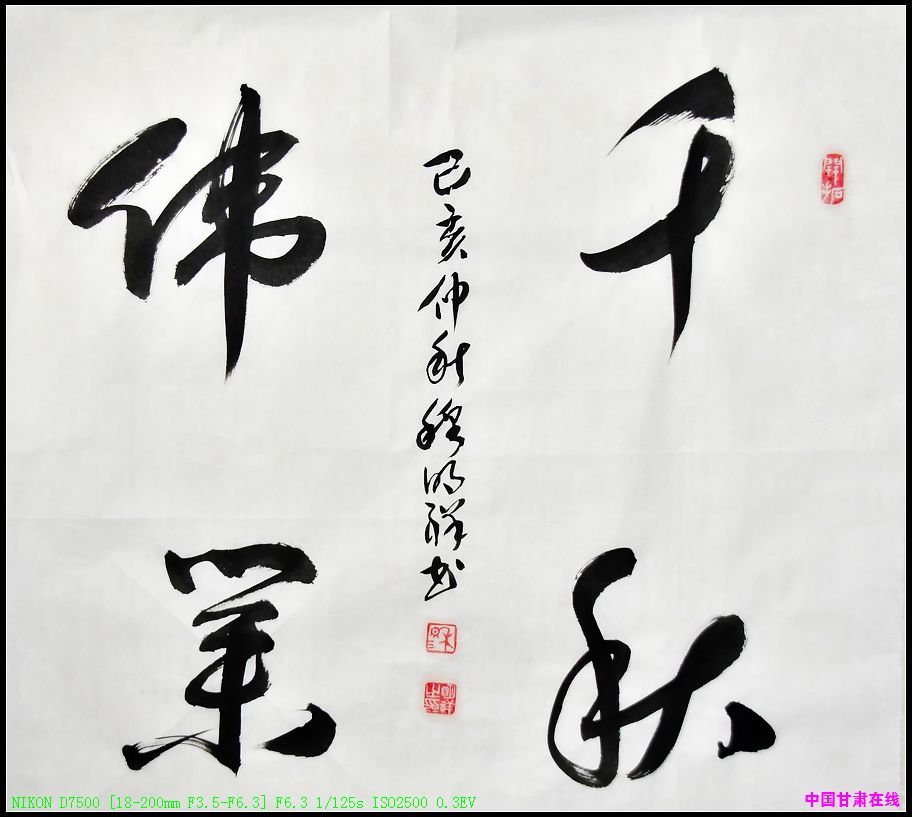 千秋
伟业
己亥仲秋穆明祥书
開拓
穆
明祥之印
NIKON D7500 [18-200mm F3.5-F6.3] F6.3 1/125s ISO2500 0.3EV
中国甘肃在线